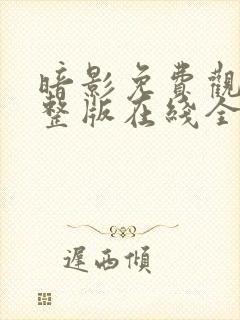 暗影免費觀
整版在綫全
遲西傾